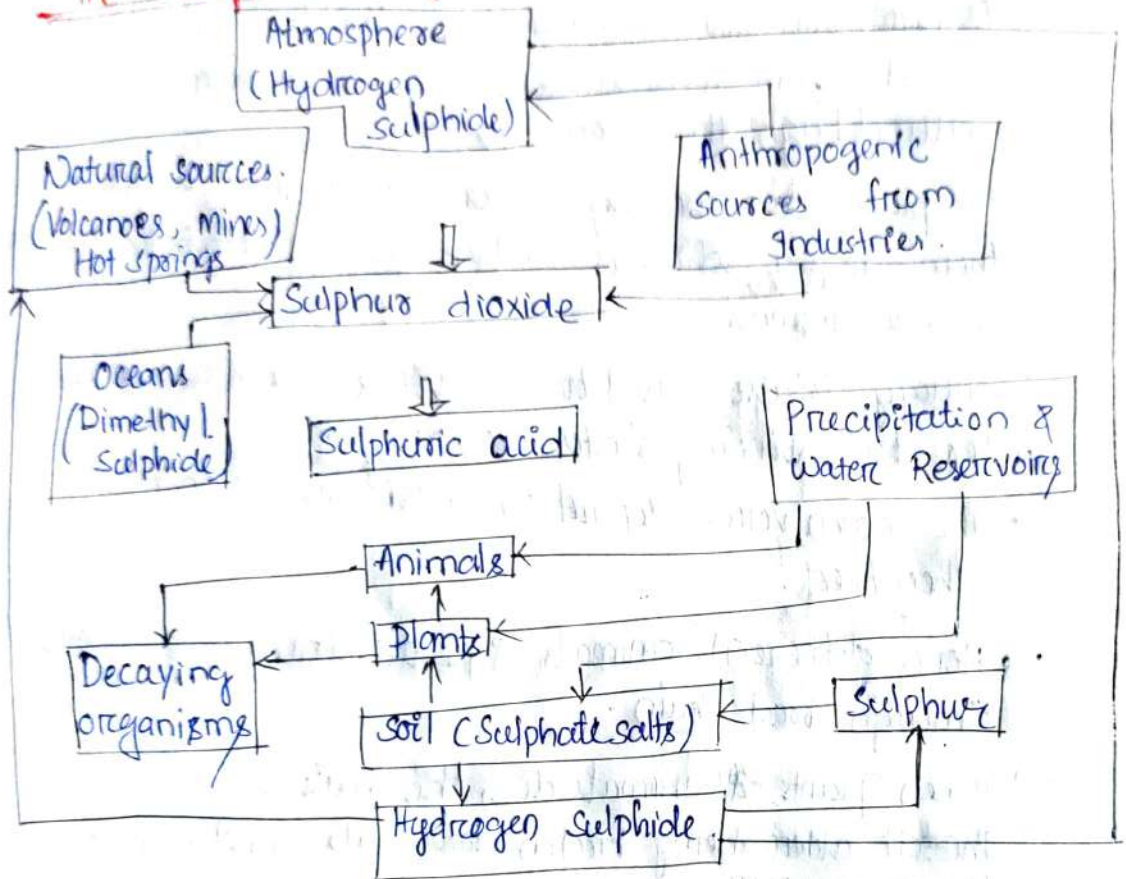 Atmosphere
(Hydrogen
Sulphide)
Natural sources.
(Volcanoes, Mines)
Hot springs
Anthropogenic
Sources from
Industries.
Sulphur dioxide
Oceans
(Dimethyl.
Sulphide)
Sulphuric acid
Precipitation &
Water Reservoirs
Animals
Plants
Decaying
organisms
Soil (Sulphate salts)
Sulphur
Hydrogen Sulphide.